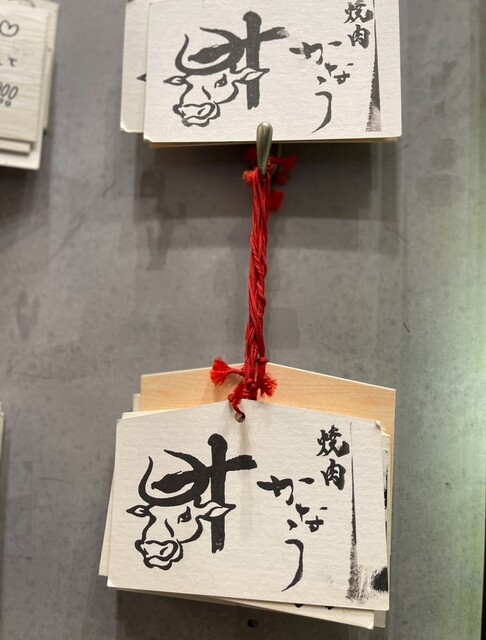 焼肉
かなう
焼肉
かなう